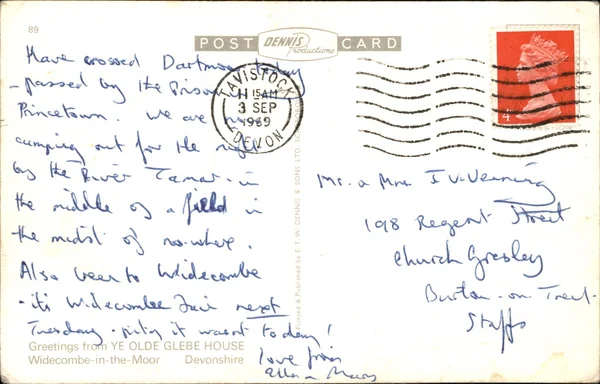 89
POST DENNIS Productions CARD
Have crossed Dartmoor today
- passed by the Prison in
Princetown. We are now
camping out for the night
by the River Tamar - in
the middle of a field in
the midst of no-where.
Also been to Widecombe
- it's Widecombe Fair next
Tuesday - pity it wasn't today!
love from
Greetings from YE OLDE GLEBE HOUSE
Widecombe-in-the-Moor Devonshire
TAVISTOCK
11 15AM
3 SEP
1969
DEVON
4
Printed & Published by E. T. W. DENNIS & SONS LTD.
Mr. & Mrs.
198 Regent Street
Church Gresley
Burton-on-Trent
Staffs